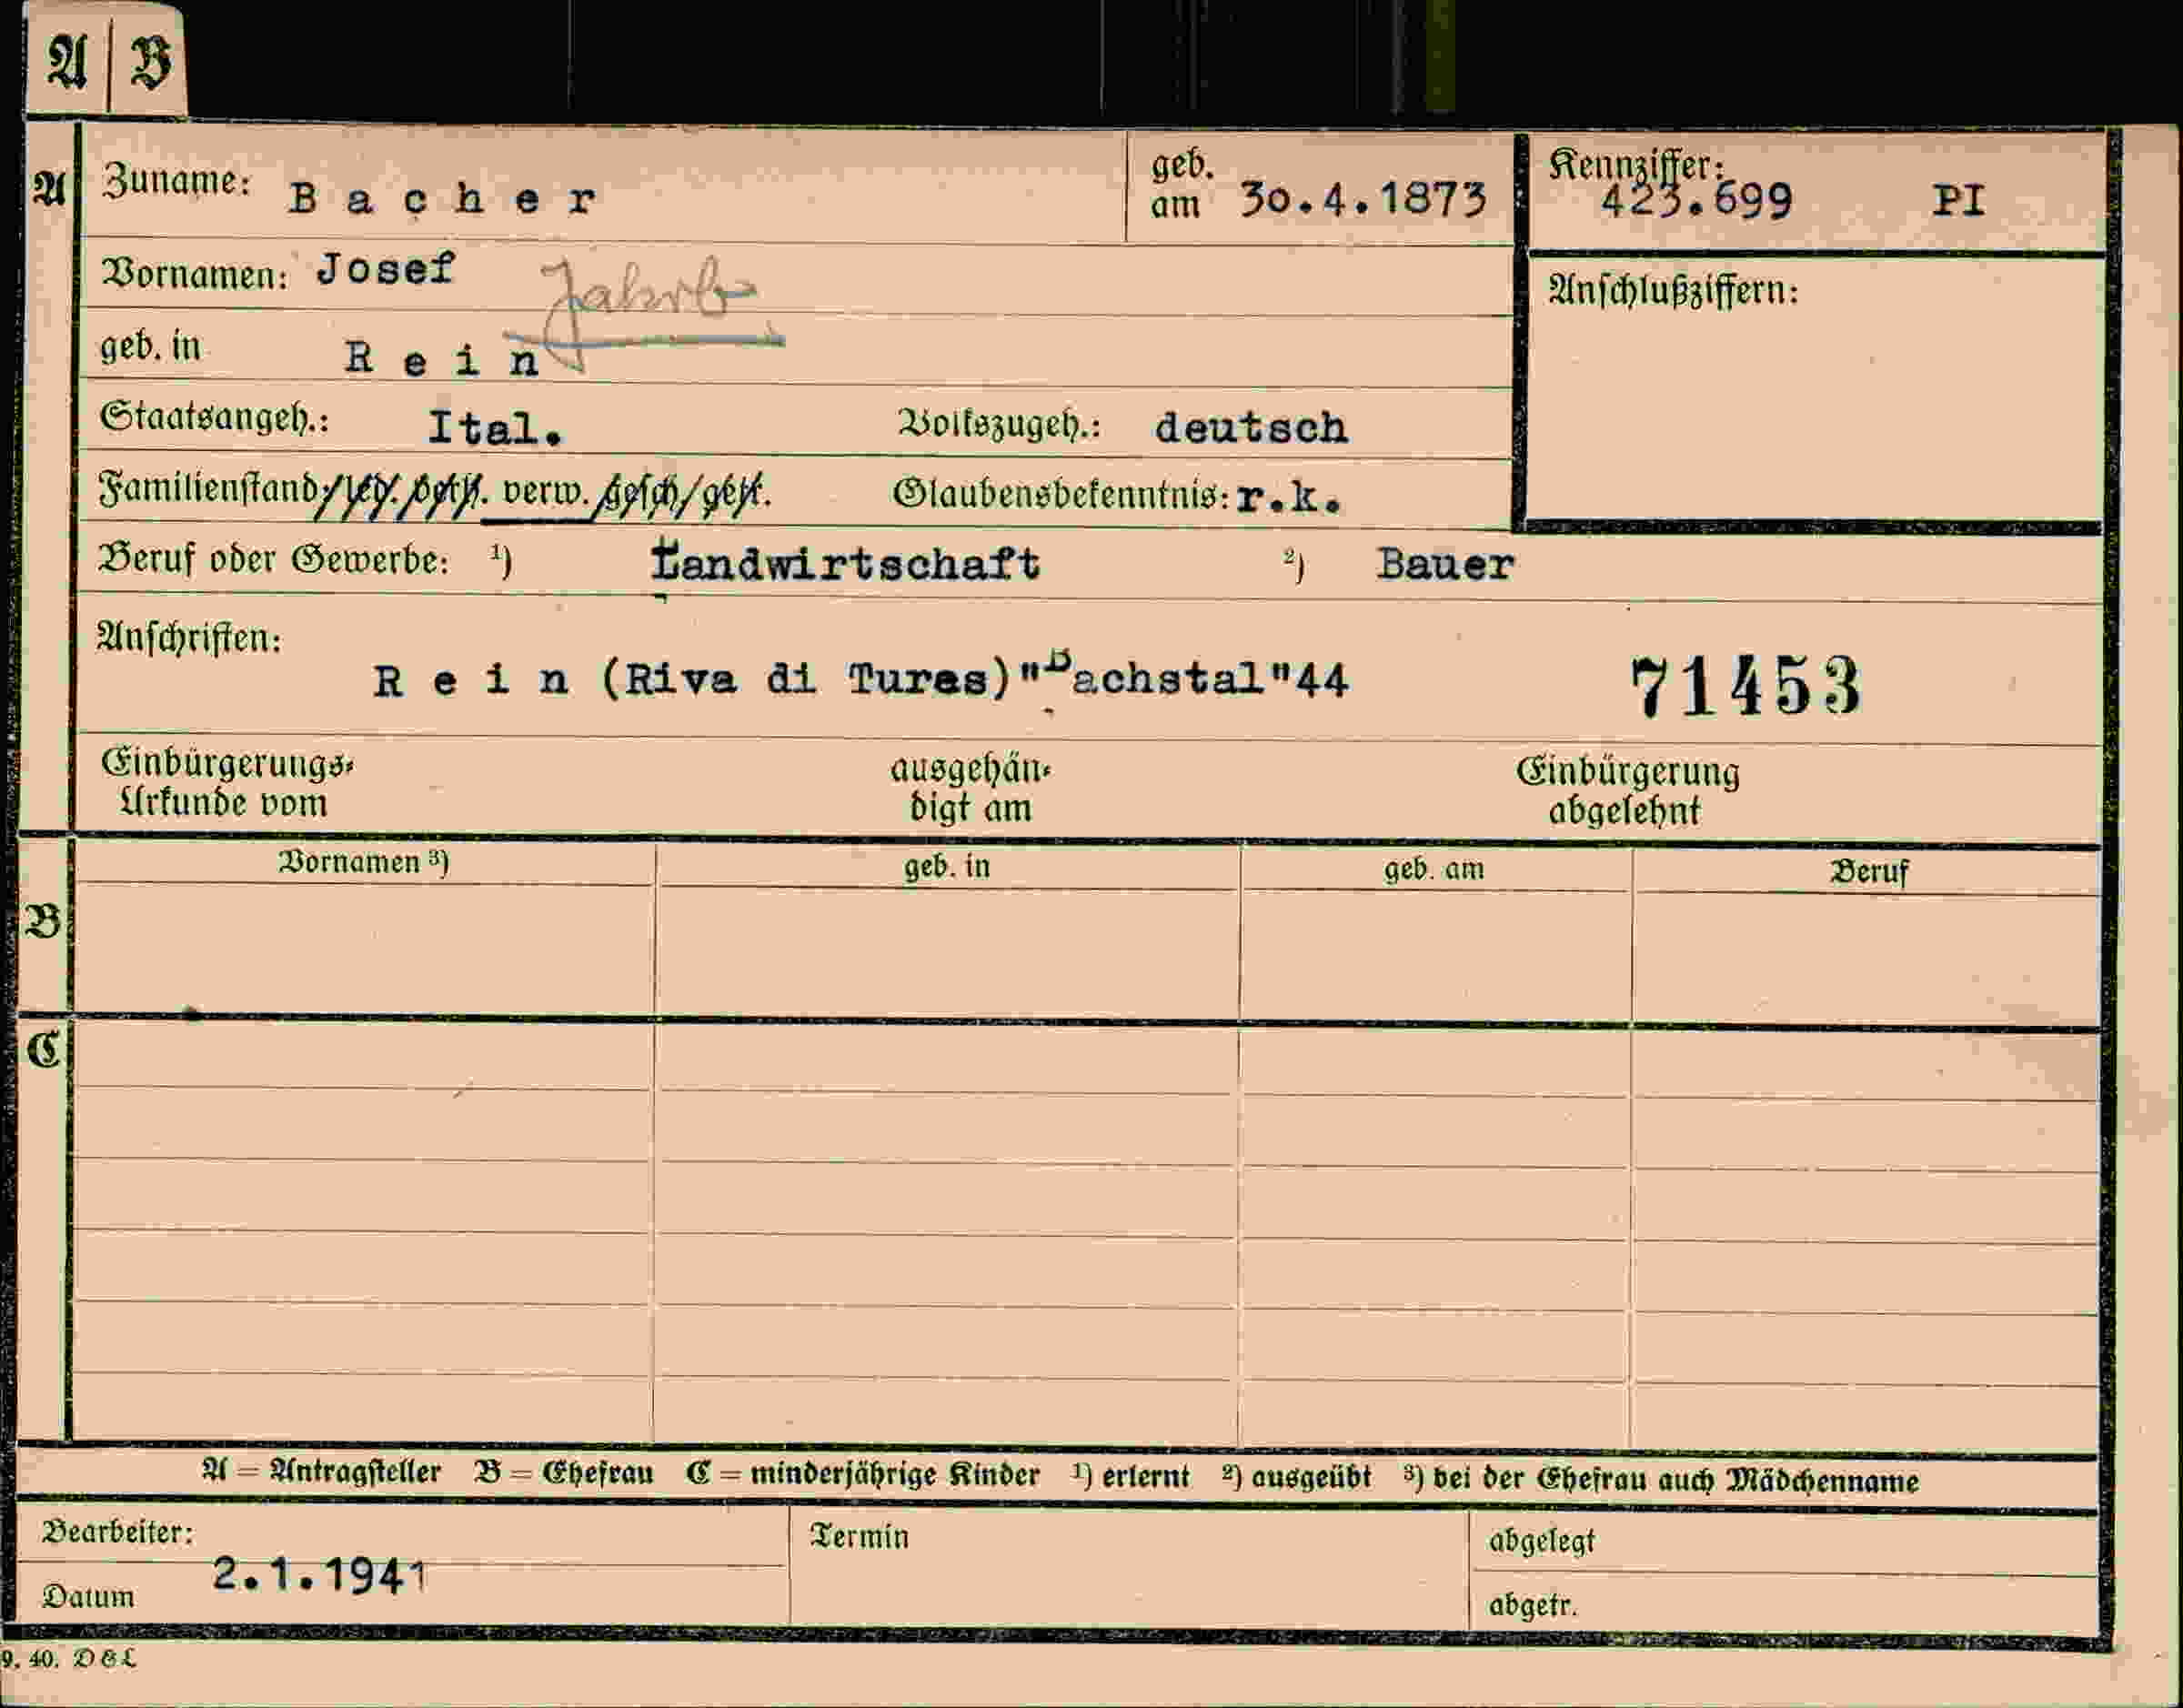 A B
A Zuname: Bacher geb. am 30.4.1873 Kennziffer: 423.699 PI
Vornamen: Josef Anschlußziffern:
geb. in Rein
Staatsangeh.: Ital. Volkszugeh.: deutsch
Familienstand: led. verh. verw. gesch. getr. Glaubensbekenntnis: r.k.
Beruf oder Gewerbe: 1) Landwirtschaft 2) Bauer
Anschriften:
Rein (Riva di Tures) "Bachstal" 44 71453
Einbürgerungs- ausgehän- Einbürgerung
Urkunde vom digt am abgelehnt
Vornamen 3) geb. in geb. am Beruf
B
C
A = Antragsteller B = Ehefrau C = minderjährige Kinder 1) erlernt 2) ausgeübt 3) bei der Ehefrau auch Mädchenname
Bearbeiter: Termin abgelegt
2.1.1941
Datum abgetr.
9. 40. D & L